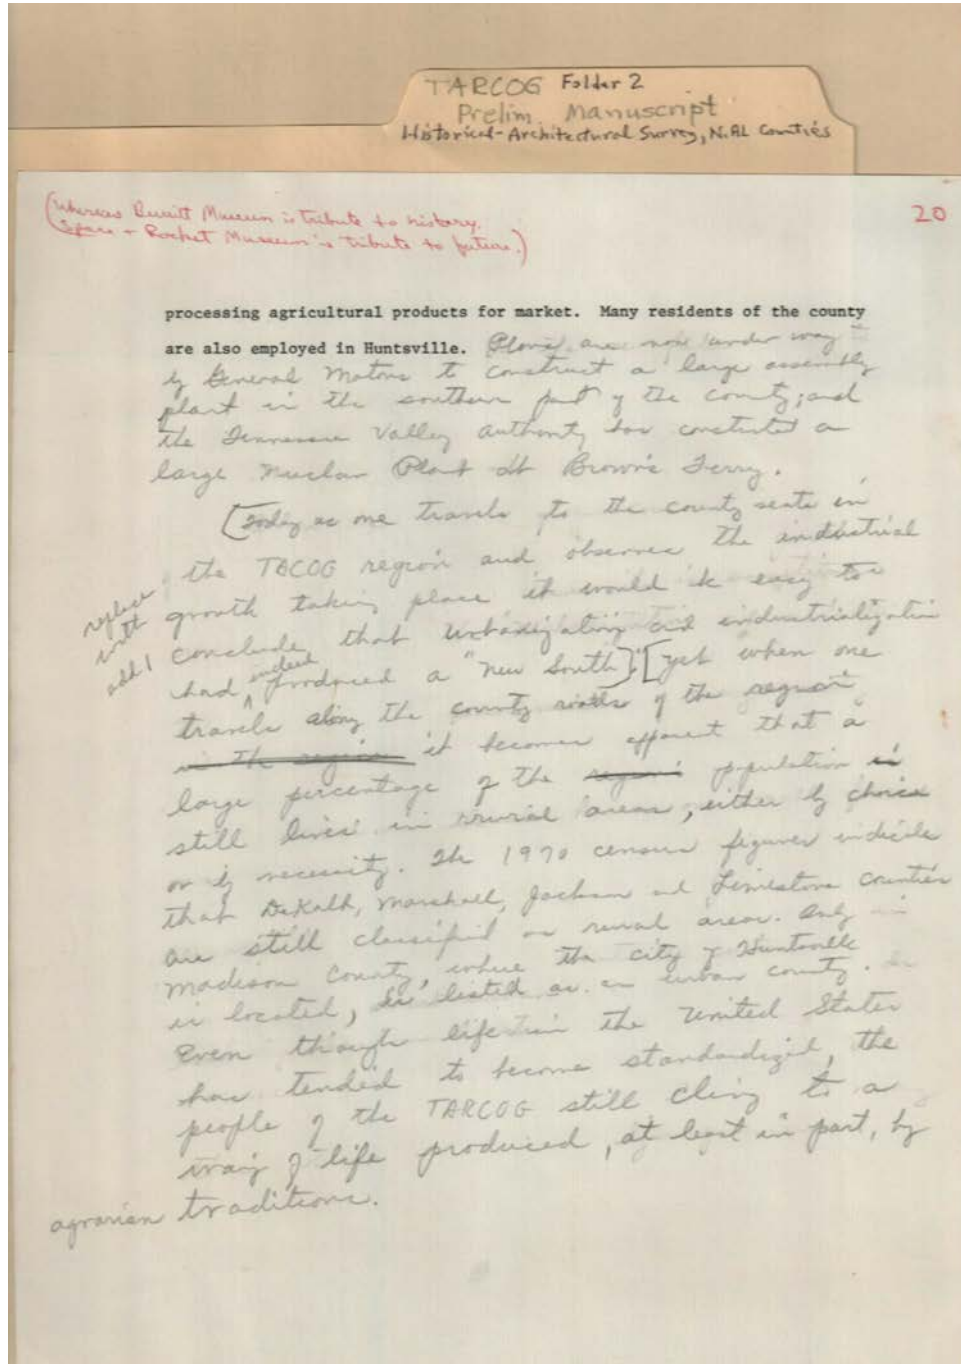 TARCOG Folder 2
Prelim. Manuscript
Historical-Architectural Survey, N.AL Counties
(Whereas Burritt Museum is tribute to history.
Space + Rocket Museum is tribute to future.)
20
processing agricultural products for market. Many residents of the county
are also employed in Huntsville. Plans are now under way
by General Motors to construct a large assembly
plant in the southern part of the county; and
the Tennessee Valley Authority has constructed a
large Nuclear Plant at Brown's Ferry.
[Today as one travels to the county seats in
the TACOG region and observes the industrial
growth taking place it would be easy to
conclude that urbanization and industrialization
had indeed produced a "new South"] [yet when one
replace
with
add 1
travels along the county roads of the region
in the region it becomes apparent that a
large percentage of the region's population is
still lives in rural areas, either by choice
or by necessity. The 1970 census figures indicate
that DeKalb, Marshall, Jackson and Limestone Counties
are still classified as rural areas. Only
Madison County, where the city of Huntsville
is located, is listed as an urban county.
Even though life in the United States
has tended to become standardized, the
people of the TARCOG still cling to a
way of life produced, at least in part, by
agrarian traditions.